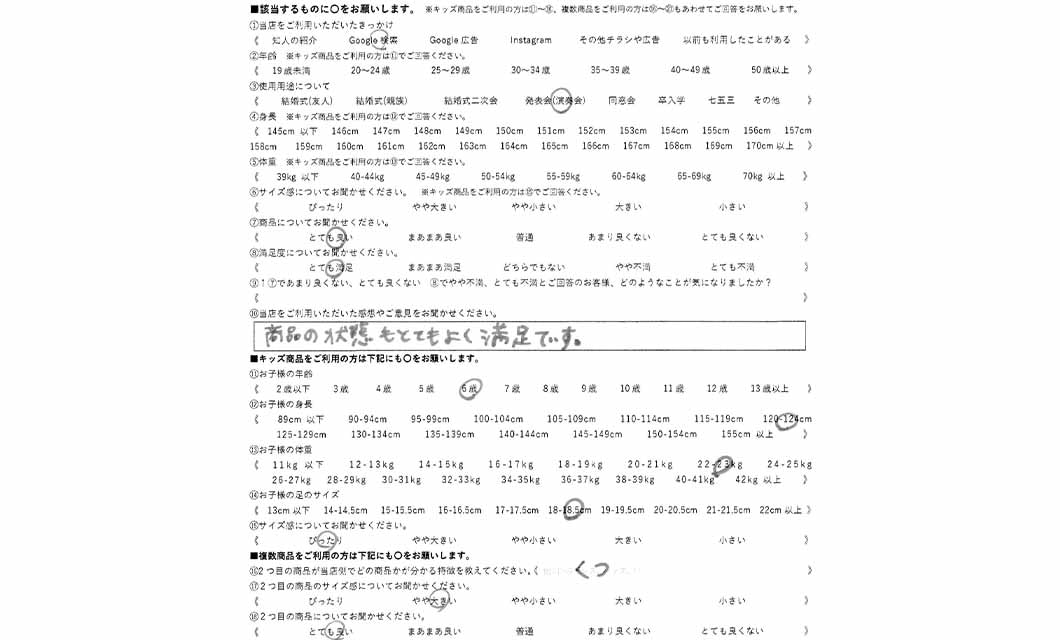 ■該当するものに〇をお願いします。 ※キッズ商品をご利用の方は⑪～⑮、複数商品をご利用の方は⑯～㉑もあわせてご回答をお願いします。
①当店をご利用いただいたきっかけ
《 知人の紹介 Google 検索 Google 広告 Instagram その他チラシや広告 以前も利用したことがある 》
②年齢 ※キッズ商品をご利用の方は⑪でご回答ください。
《 19歳未満 20～24歳 25～29歳 30～34歳 35～39歳 40～49歳 50歳以上 》
③使用用途について
《 結婚式(友人) 結婚式(親族) 結婚式二次会 発表会(演奏会) 同窓会 卒入学 七五三 その他 》
④身長 ※キッズ商品をご利用の方は⑫でご回答ください。
《 145cm 以下 146cm 147cm 148cm 149cm 150cm 151cm 152cm 153cm 154cm 155cm 156cm 157cm
158cm 159cm 160cm 161cm 162cm 163cm 164cm 165cm 166cm 167cm 168cm 169cm 170cm以上 》
⑤体重 ※キッズ商品をご利用の方は⑬でご回答ください。
《 39kg 以下 40-44kg 45-49kg 50-54kg 55-59kg 60-64kg 65-69kg 70kg 以上 》
⑥サイズ感についてお聞かせください。 ※キッズ商品をご利用の方は⑮でご回答ください。
《 ぴったり やや大きい やや小さい 大きい 小さい 》
⑦商品についてお聞かせください。
《 とても良い まあまあ良い 普通 あまり良くない とても良くない 》
⑧満足度についてお聞かせください。
《 とても満足 まあまあ満足 どちらでもない やや不満 とても不満 》
⑨↑⑦であまり良くない、とても良くない ⑧でやや不満、とても不満とご回答のお客様、どのようなことが気になりましたか？
《 》
⑩当店をご利用いただいた感想やご意見をお聞かせください。
商品の状態もとてもよく満足です。
■キッズ商品をご利用の方は下記にも〇をお願いします。
⑪お子様の年齢
《 2歳以下 3歳 4歳 5歳 6歳 7歳 8歳 9歳 10歳 11歳 12歳 13歳以上 》
⑫お子様の身長
《 89cm 以下 90-94cm 95-99cm 100-104cm 105-109cm 110-114cm 115-119cm 120-124cm
125-129cm 130-134cm 135-139cm 140-144cm 145-149cm 150-154cm 155cm 以上 》
⑬お子様の体重
《 11kg 以下 12-13kg 14-15kg 16-17kg 18-19kg 20-21kg 22-23kg 24-25kg
26-27kg 28-29kg 30-31kg 32-33kg 34-35kg 36-37kg 38-39kg 40-41kg 42kg 以上 》
⑭お子様の足のサイズ
《 13cm以下 14-14.5cm 15-15.5cm 16-16.5cm 17-17.5cm 18-18.5cm 19-19.5cm 20-20.5cm 21-21.5cm 22cm以上 》
⑮サイズ感についてお聞かせください。
《 ぴったり やや大きい やや小さい 大きい 小さい 》
■複数商品をご利用の方は下記にも〇をお願いします。
⑯2つ目の商品が当店側でどの商品かが分かる特徴を教えてください。《 くつ 》
⑰2つ目の商品のサイズ感についてお聞かせください。
《 ぴったり やや大きい やや小さい 大きい 小さい 》
⑱2つ目の商品についてお聞かせください。
《 とても良い まあまあ良い 普通 あまり良くない とても良くない 》